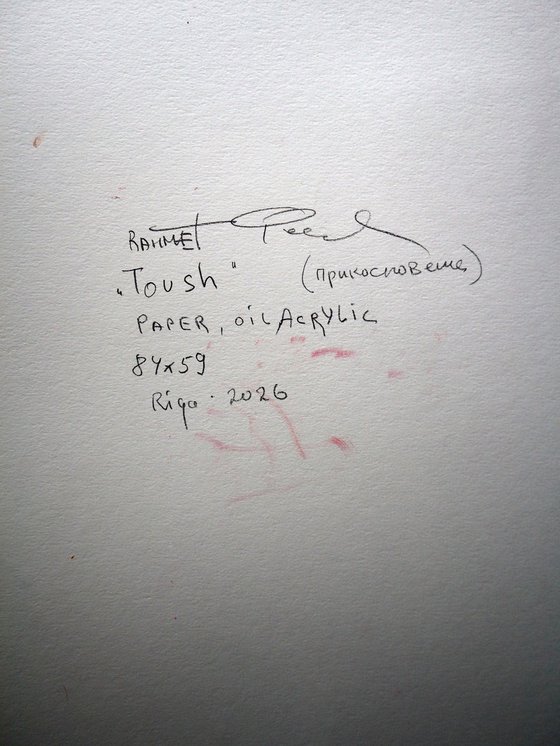 RAHMET
„Toush" (прикосновение)
PAPER, OIL ACRYLIC
84x59
Riga · 2026